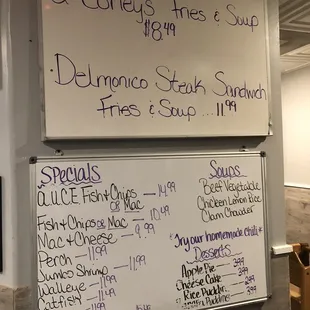 2 Coneys Fries & Soup
$8.49
Delmonico Steak Sandwich
Fries & Soup ... 11.99
Specials
A.U.C.E. Fish & Chips — 14.99
or Mac
Fish & Chips or Mac — 10.49
Mac & Cheese — 9.99
Perch — 11.99
Jumbo Shrimp — 11.99
Walleye — 11.99
Catfish — 11.49
Soups
Beef Vegetable
Chicken Lemon Rice
Clam Chowder
*Try our homemade chili*
Desserts
Apple Pie — 3.99
Cheese Cake — 3.99
Rice Pudding — 3.99
Pudding